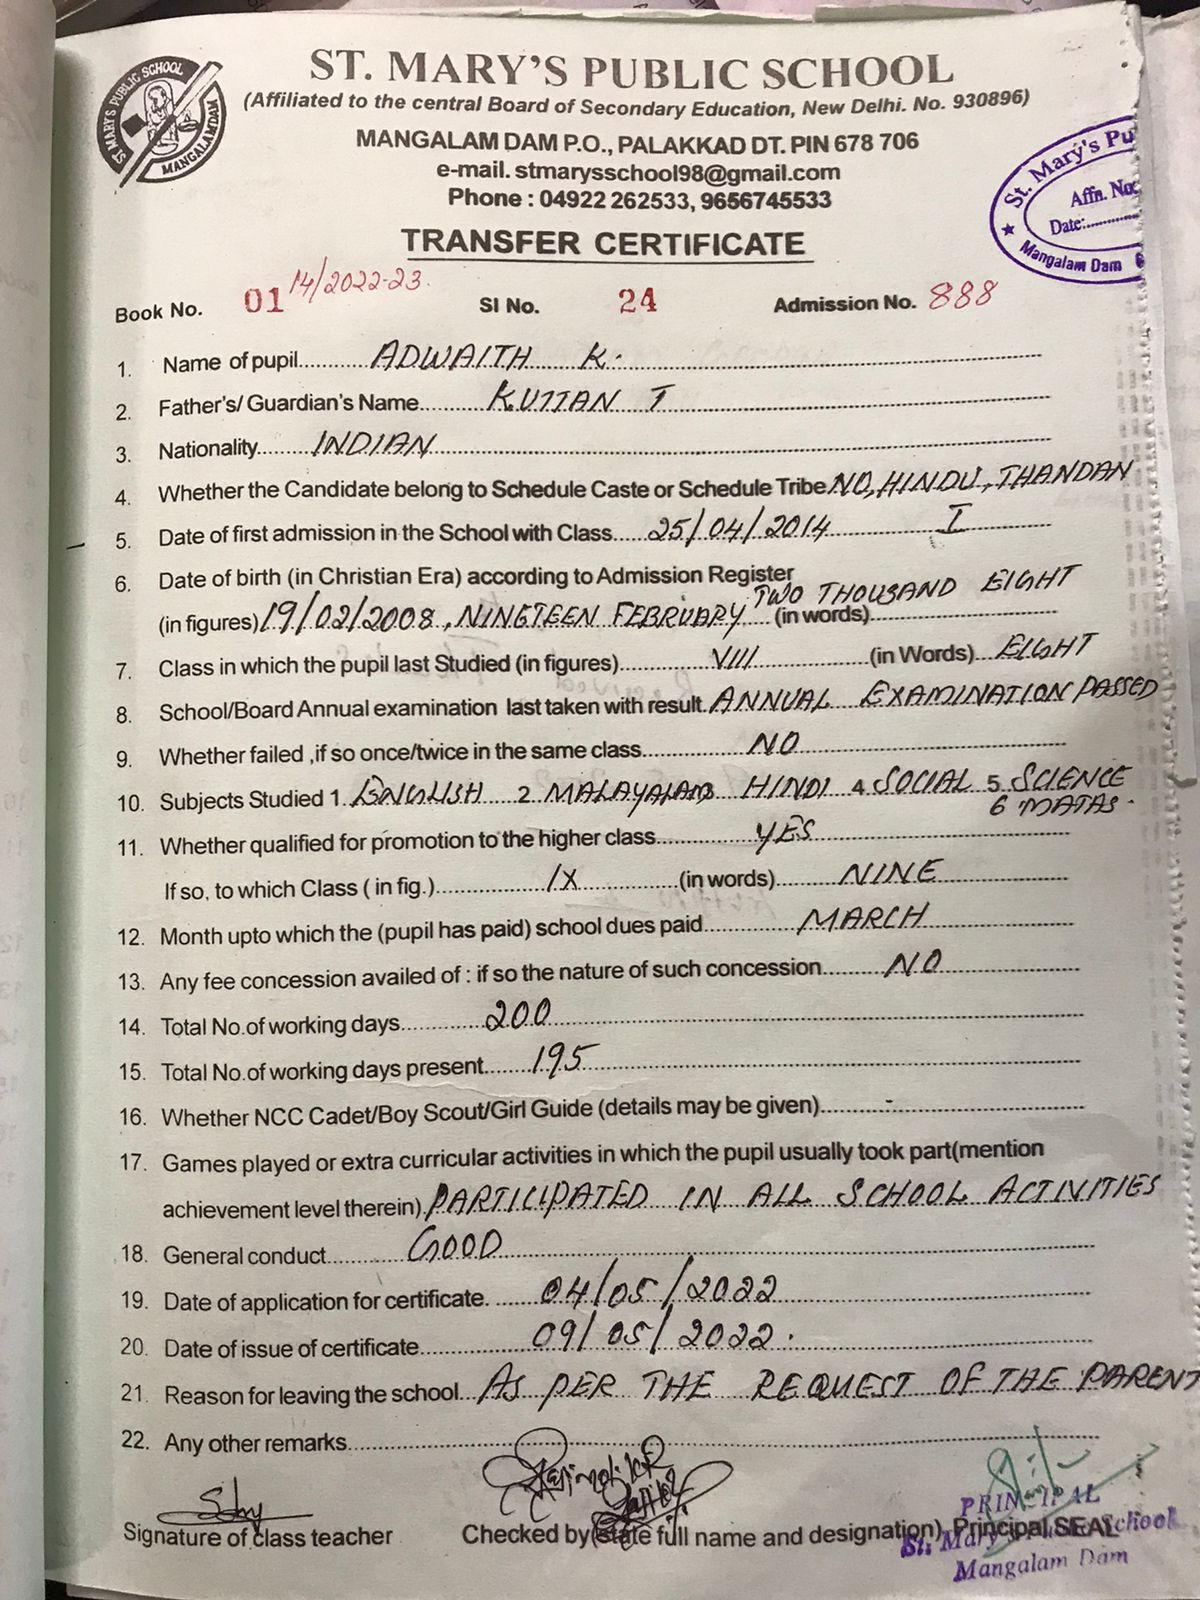 ST. MARY'S PUBLIC SCHOOL
MANGALAMDAM
ST. MARY'S PUBLIC SCHOOL
(Affiliated to the central Board of Secondary Education, New Delhi. No. 930896)
MANGALAM DAM P.O., PALAKKAD DT. PIN 678 706
e-mail. stmarysschool98@gmail.com
Phone : 04922 262533, 9656745533
St. Mary's Pu
Affn. No:
Date:
Mangalam Dam
TRANSFER CERTIFICATE
Book No. 01 14/2022-23. SI No. 24 Admission No. 888
1. Name of pupil ADWAITH K.
2. Father's/ Guardian's Name KUTTAN T
3. Nationality INDIAN
4. Whether the Candidate belong to Schedule Caste or Schedule Tribe NO, HINDU, THANDAN
5. Date of first admission in the School with Class 25/04/2014 I
6. Date of birth (in Christian Era) according to Admission Register
(in figures) 19/02/2008, NINETEEN FEBRUARY TWO THOUSAND EIGHT (in words)
7. Class in which the pupil last Studied (in figures) VIII (in Words) EIGHT
8. School/Board Annual examination last taken with result. ANNUAL EXAMINATION PASSED
9. Whether failed ,if so once/twice in the same class NO
10. Subjects Studied 1. ENGLISH 2. MALAYALAM 3 HINDI 4 SOCIAL 5. SCIENCE
6 MATHS.
11. Whether qualified for promotion to the higher class YES
If so, to which Class ( in fig.) IX (in words) NINE
12. Month upto which the (pupil has paid) school dues paid MARCH
13. Any fee concession availed of : if so the nature of such concession NO
14. Total No.of working days 200
15. Total No.of working days present 195
16. Whether NCC Cadet/Boy Scout/Girl Guide (details may be given) -
17. Games played or extra curricular activities in which the pupil usually took part(mention
achievement level therein) PARTICIPATED IN ALL SCHOOL ACTIVITIES
18. General conduct GOOD
19. Date of application for certificate. 04/05/2022
20. Date of issue of certificate 09/05/2022.
21. Reason for leaving the school AS PER THE REQUEST OF THE PARENT
22. Any other remarks
Signature of class teacher Checked by (state full name and designation) Principal SEAL
PRINCIPAL
St. Mary's Public School
Mangalam Dam